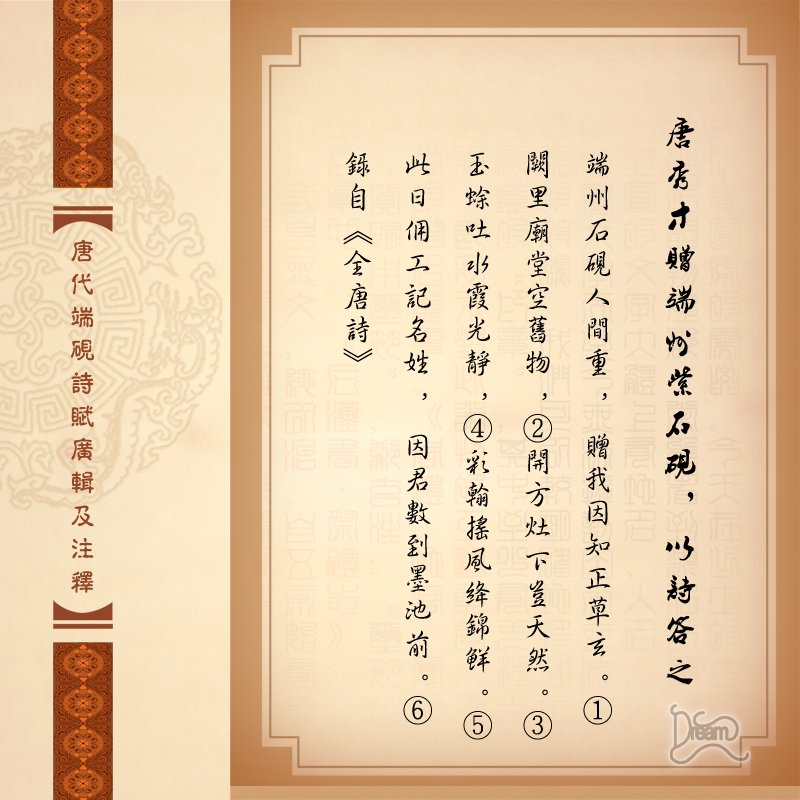 唐秀才贈端州紫石硯，以詩答之
端州石硯人間重，贈我因知正草玄。①
闕里廟堂空舊物，②開方灶下豈天然。③
玉蜍吐水霞光靜，④彩翰搖風絳錦鮮。⑤
此日傭工記名姓，因君數到墨池前。⑥
錄自《全唐詩》
唐代端硯詩賦廣輯及注釋
Dream